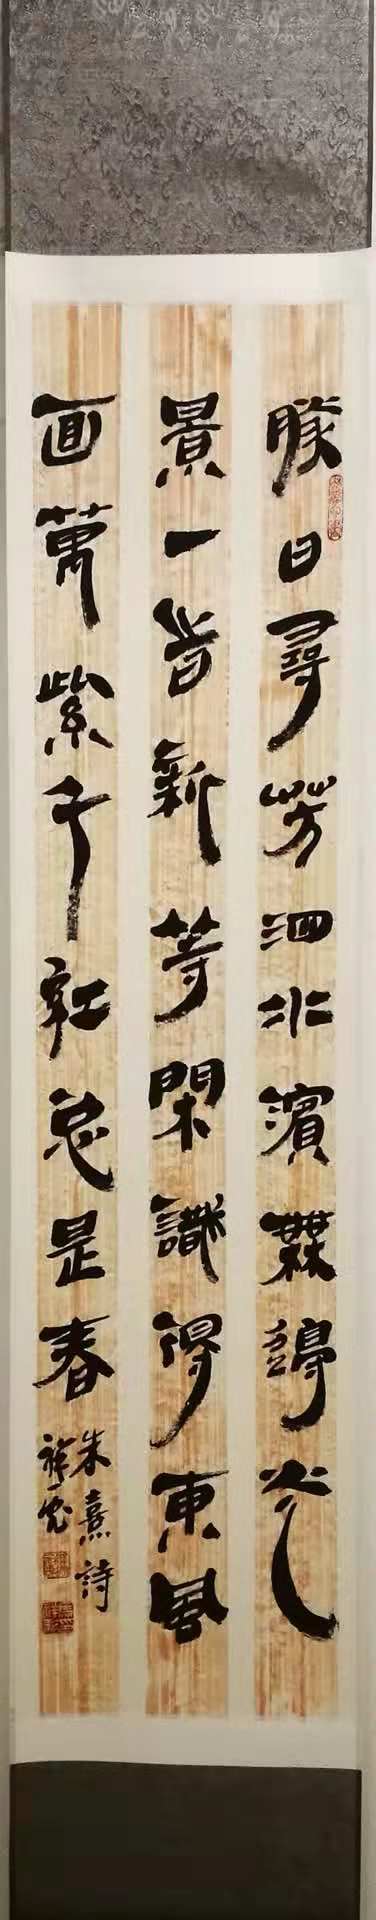 勝日尋芳泗水濱無邊光
景一旹新等閑識得東風
面萬紫千紅总是春
朱熹詩